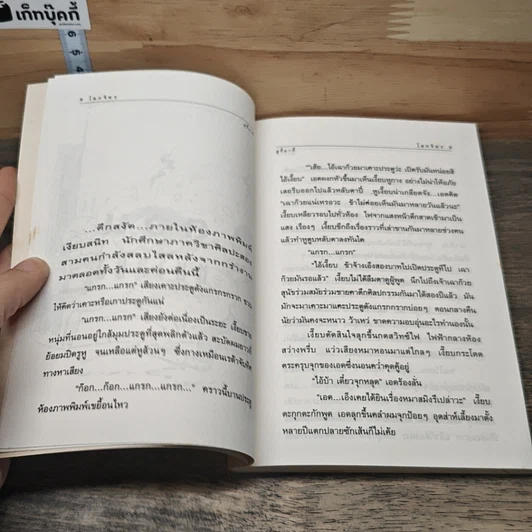 เก็ทบุ๊คกี้
6 5
๘ โลกจิตร
...ตึกสงัด...ภายในห้องภาพพิมพ์
เงียบสนิท นักศึกษาภาควิชาศิลปะสอง
สามคนกำลังสลบไสลหลังจากรำงาน
มาตลอดทั้งวันและค่อนคืนนี้
"แกรก...แกรก..." เสียงเคาะประตูดังแกรกกราก
ให้คิดว่าเคาะหรือเกาประตูกันแน่
"แกรก...แกรก" เสียงยังต่อเนื่องเป็นระยะ เงี้ยบ
หนุ่มที่นอนอยู่ใกล้มุมประตูที่สุดพลิกตัวแล้ว สะบัดผมยาวที่
ย้อยมปิดรูหู จนเหลือแต่หูล้วนๆ ซึ่งกางเหมือนเรด้า
ทางหาเสียง
"ก๊อก...ก๊อก...แกรก...แกรก..." คราวนี้บานประตู
ห้องภาพพิมพ์เขยื้อนไหว
โลกจิตร ๙
"เฮ้ย...ไอ้เฉาก๊วยมาเคาะประตูว่ะ เปิดรับมันหน่อยสิ
ไอ้เงี้ยบ" เอดผงกหัวขึ้นมาเห็นเงี้ยบหูกาง อย่างไม่น่าให้อภัย
เลยรีบออกไปแล้วหลับตาปี๋ หูเงี้ยบน่าเกลียดจัง...เอดคิด
"เฉาก๊วยแน่เหรอวะ ข้าไม่ค่อยเห็นมันมาหลายวันแล้วนะ"
เงี้ยบเหลียวรอบไปทั่วห้อง ไฟจากแสงหน้าตึกสาดเข้ามาเป็น
แสง เรืองๆ เงี้ยบชักถึงเรื่องราวที่เล่าขานกันมาหลายช่วงคน
แล้วทำหูตูบหลับตาลงทันใด
"แกรก...แกรก"
"ไอ้เงี้ยบ ข้าจ้างเอ็งสองบาทไปเปิดประตูที่ไป เฉา
ก๊วยมันรอแล้ว" เงี้ยบไม่ได้ลืมตาดูผู้พูด นึกไปถึงเจ้าเฉาก๊วย
สุนัขร่วมสมัยร่วมชายคาตึกศิลปกรรมกันมาได้สองปีแล้ว มัน
มักจะมาเคาะมาแคะประตูดังแกรกกรากบ่อยๆ ตอนกลางคืน
นัยว่ามันคงจะหนาว ว้าเหว่ ขาดความอบอุ่นอะไรทำนองนั้น
เงี้ยบตัดสินใจลุกขึ้นกดสวิทช์ไฟ ไฟฟ้ากลางห้อง
สว่างพรึ่บ แว่วเสียงหมาหอนมาแต่ไกลๆ เงี้ยบกระโดด
ตะครุบจุกของเอดซึ่งนอนคว่ำคุดคู้อยู่
"ไอ้บ้า เดี๋ยวจุกหลุด" เอดร้องลั่น
"เอด...เอ็งเคยได้ยินเรื่องหมาสมิงรึเปล่าวะ" เงี้ยบ
ตะกุกตะกักพูด เอดลุกขึ้นคลำผมจุกป้อยๆ อุตส่าห์เลี้ยงมาตั้ง
หลายปีแตกปลายซักเส้นก็ไม่เคย